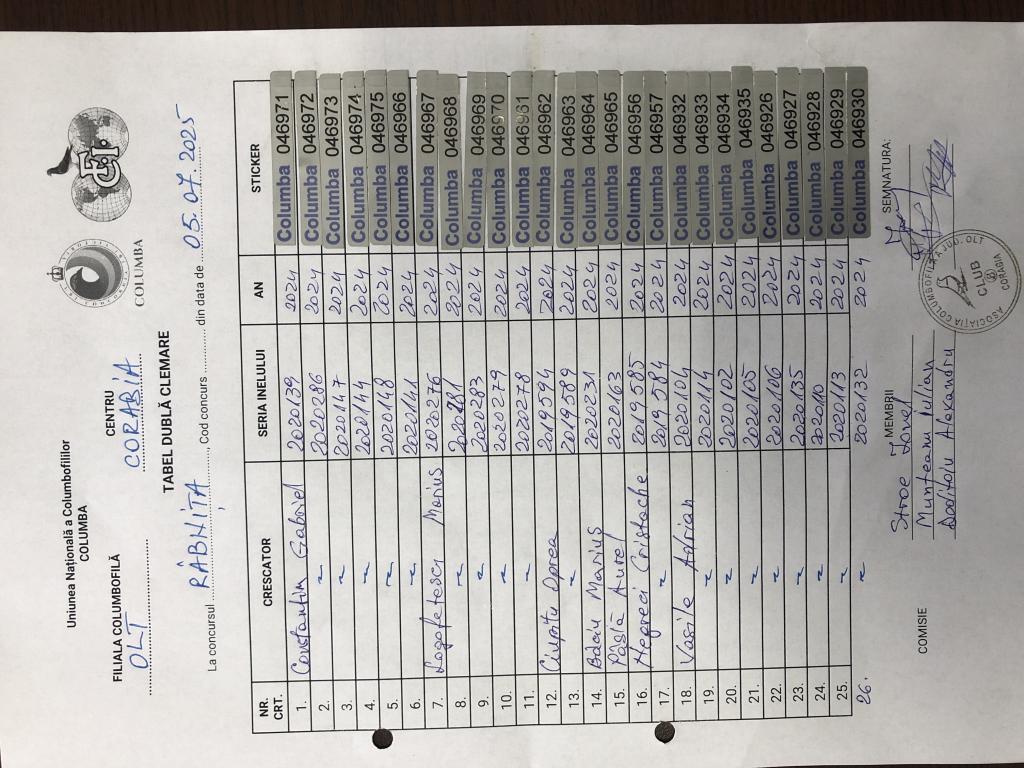 Uniunea Națională a Columbofililor
COLUMBA
FILIALA COLUMBOFILĂ CENTRU
OLT CORABIA
COLUMBA
F.C.I.
TABEL DUBLĂ CLEMARE
La concursul RÂBNIȚA, Cod concurs din data de 05.07.2025
NR. CRT. CRESCATOR SERIA INELULUI AN STICKER
1. Constantin Gabriel 2020139 2024 Columba 046971
2. ~ 2020286 2024 Columba 046972
3. ~ 2020147 2024 Columba 046973
4. ~ 2020144 2024 Columba 046974
5. ~ 2020148 2024 Columba 046975
6. ~ 2020141 2024 Columba 046966
7. Logofetescu Marius 2020276 2024 Columba 046967
8. ~ 2020281 2024 Columba 046968
9. ~ 2020283 2024 Columba 046969
10. ~ 2020279 2024 Columba 046970
11. ~ 2020278 2024 Columba 046961
12. Ciupitu Oprea 2019594 2024 Columba 046962
13. ~ 2019589 2024 Columba 046963
14. Bdoiu Marius 2020231 2024 Columba 046964
15. Păslă Aurel 2020163 2024 Columba 046965
16. Negreci Cristache 2019585 2024 Columba 046956
17. ~ 2019584 2024 Columba 046957
18. Vasile Adrian 2020104 2024 Columba 046932
19. ~ 2020114 2024 Columba 046933
20. ~ 2020102 2024 Columba 046934
21. ~ 2020105 2024 Columba 046935
22. ~ 2020106 2024 Columba 046926
23. ~ 2020135 2024 Columba 046927
24. ~ 2020110 2024 Columba 046928
25. ~ 2020113 2024 Columba 046929
26. ~ 2020132 2024 Columba 046930
COMISIE MEMBRII SEMNATURA:
Stroe Ionel
Munteanu Iulian
Doditoiu Alexandru
ASOCIAȚIA COLUMBOFILĂ JUD. OLT
CLUB
CORABIA